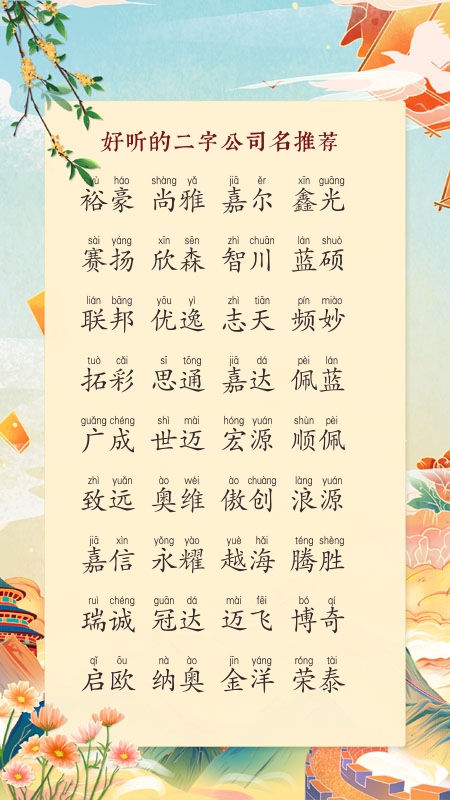 好听的二字公司名推荐
yù háo shàng yǎ jiā ěr xīn guāng
裕豪 尚雅 嘉尔 鑫光
sài yáng xīn sēn zhì chuān lán shuò
赛扬 欣森 智川 蓝硕
lián bāng yōu yì zhì tiān pín miào
联邦 优逸 志天 频妙
tuò cǎi sī tōng jiā dá pèi lán
拓彩 思通 嘉达 佩蓝
guǎng chéng shì mài hóng yuán shùn pèi
广成 世迈 宏源 顺佩
zhì yuǎn ào wéi ào chuàng làng yuán
致远 奥维 傲创 浪源
jiā xìn yǒng yào yuè hǎi téng shèng
嘉信 永耀 越海 腾胜
ruì chéng guān dá mài fēi bó qí
瑞诚 冠达 迈飞 博奇
qǐ ōu nà ào jīn yáng róng tài
启欧 纳奥 金洋 荣泰